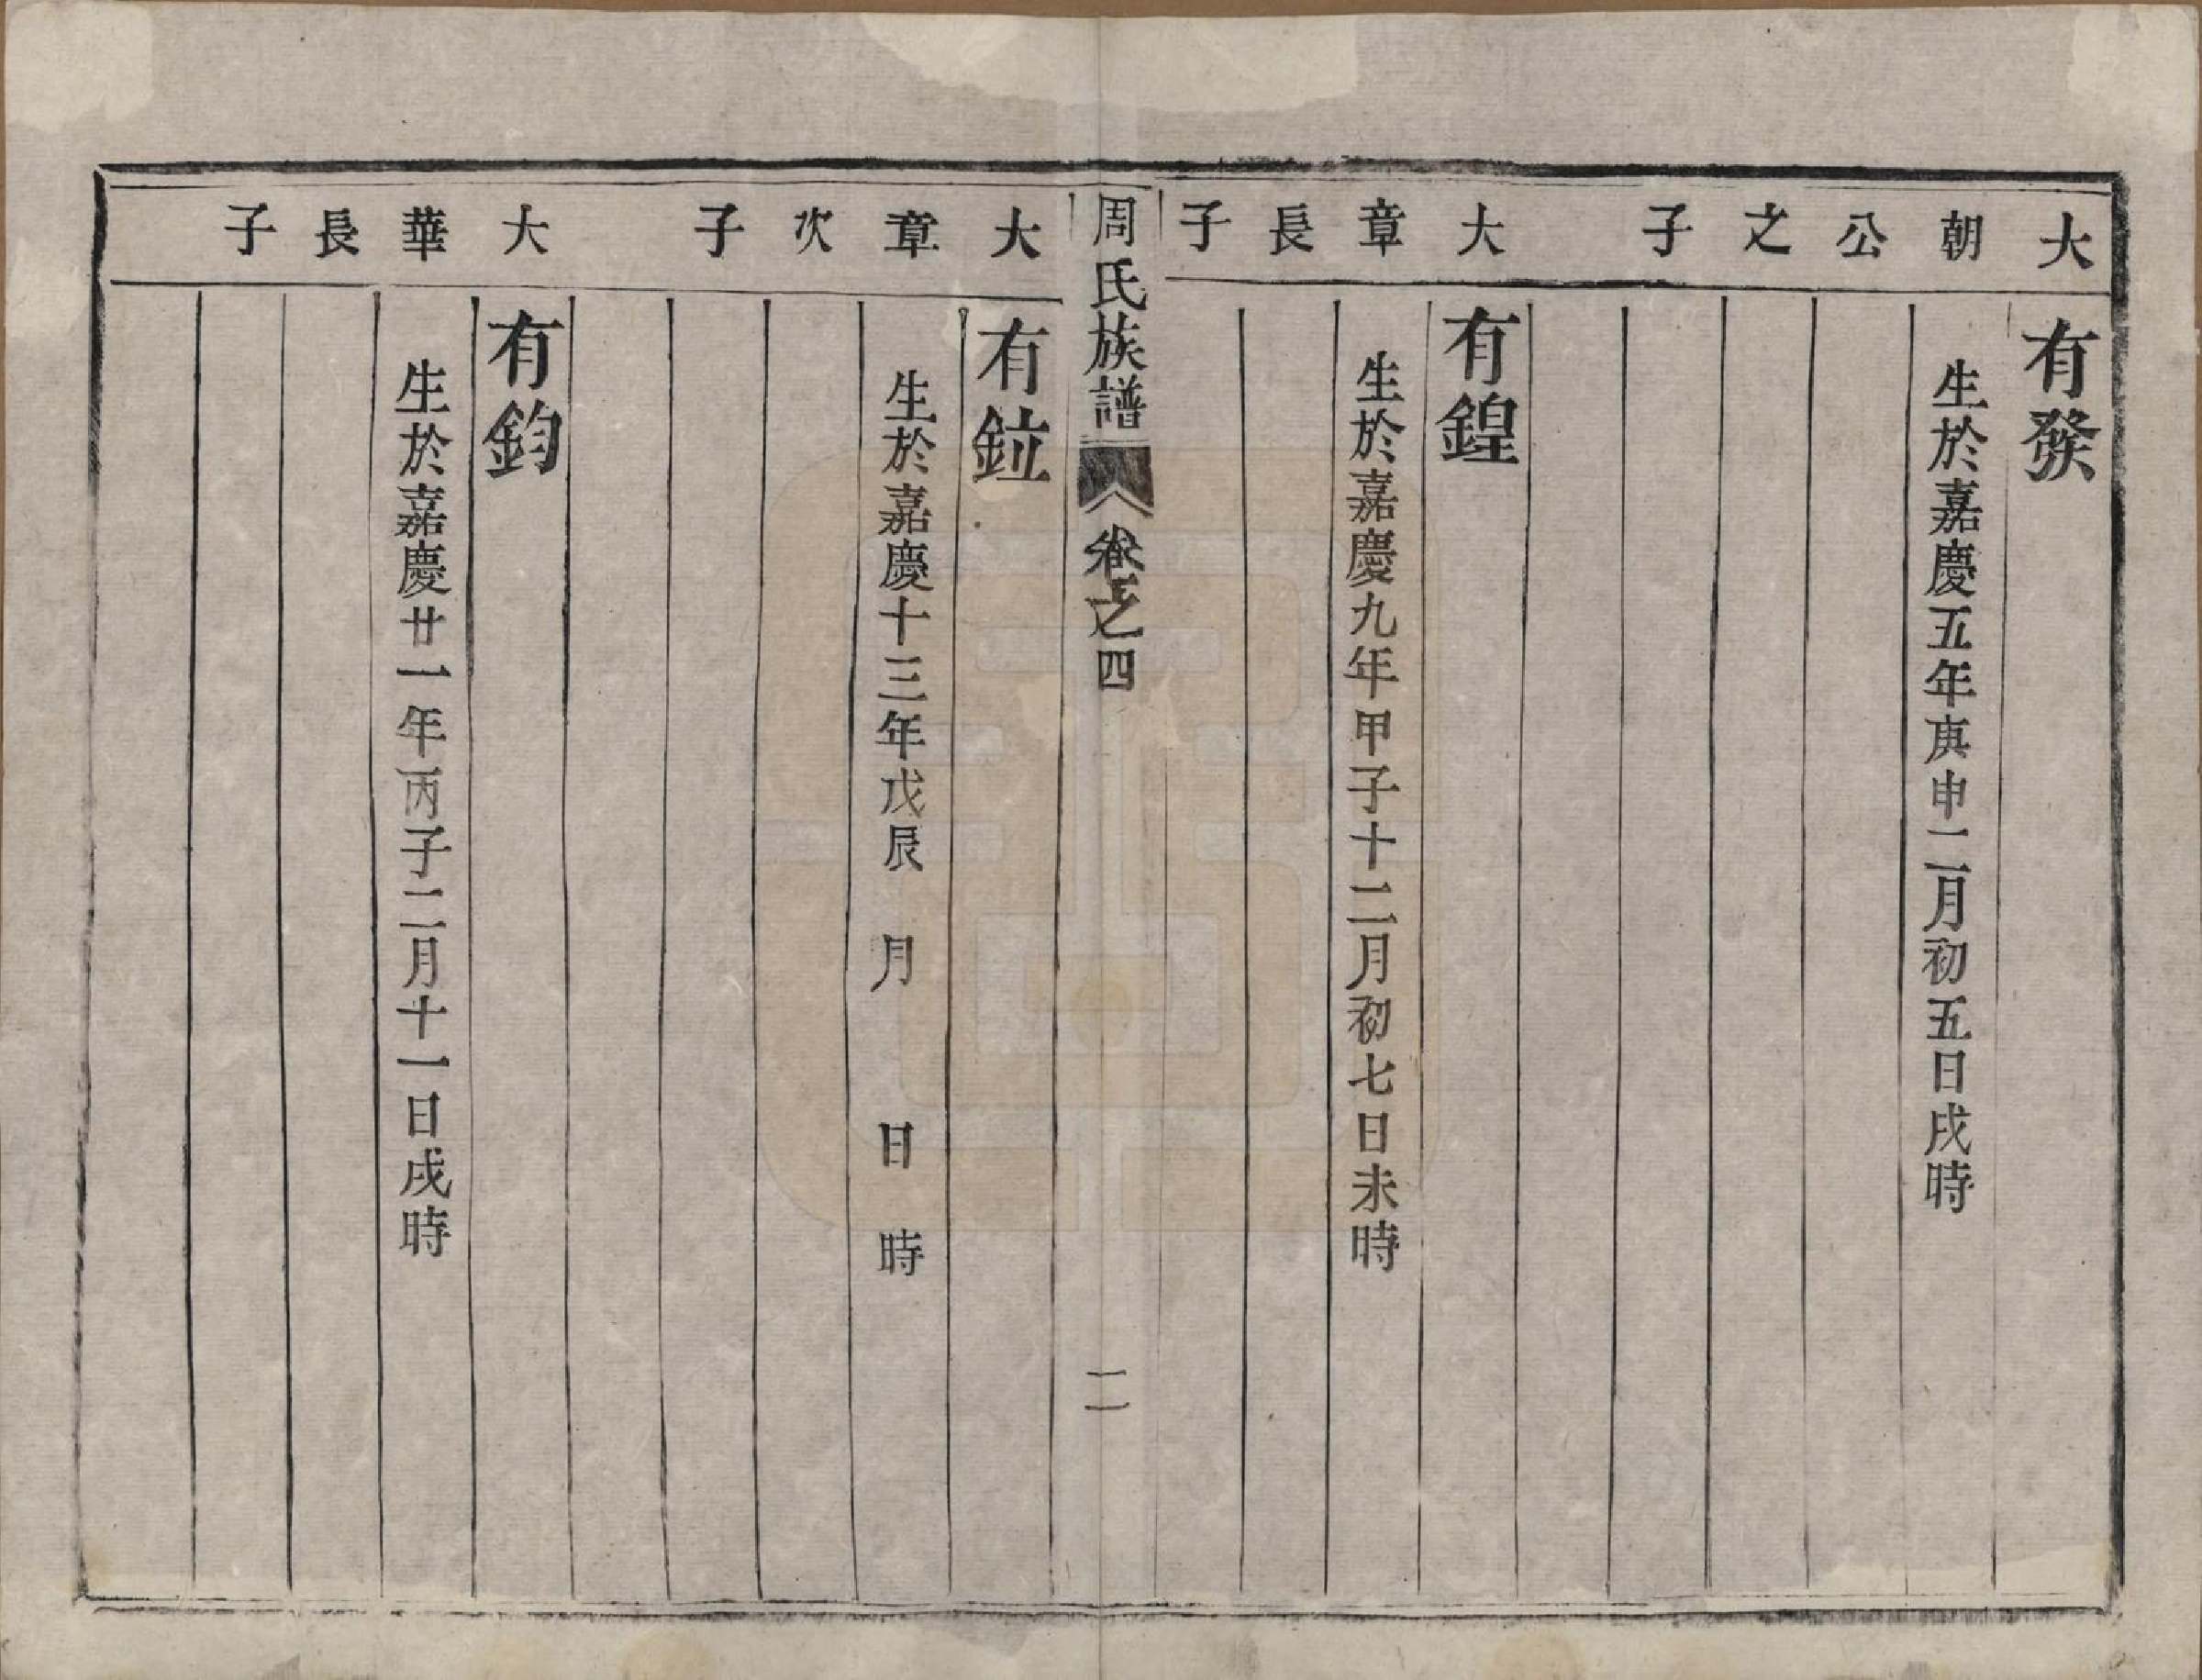 大朝公之子
有發
生於嘉慶五年庚申二月初五日戌時
大章長子
有鍠
生於嘉慶九年甲子十二月初七日未時
周氏族譜
卷之四
二
大章次子
有鉝
生於嘉慶十三年戊辰 月 日 時
大華長子
有鈞
生於嘉慶廿一年丙子二月十一日戌時